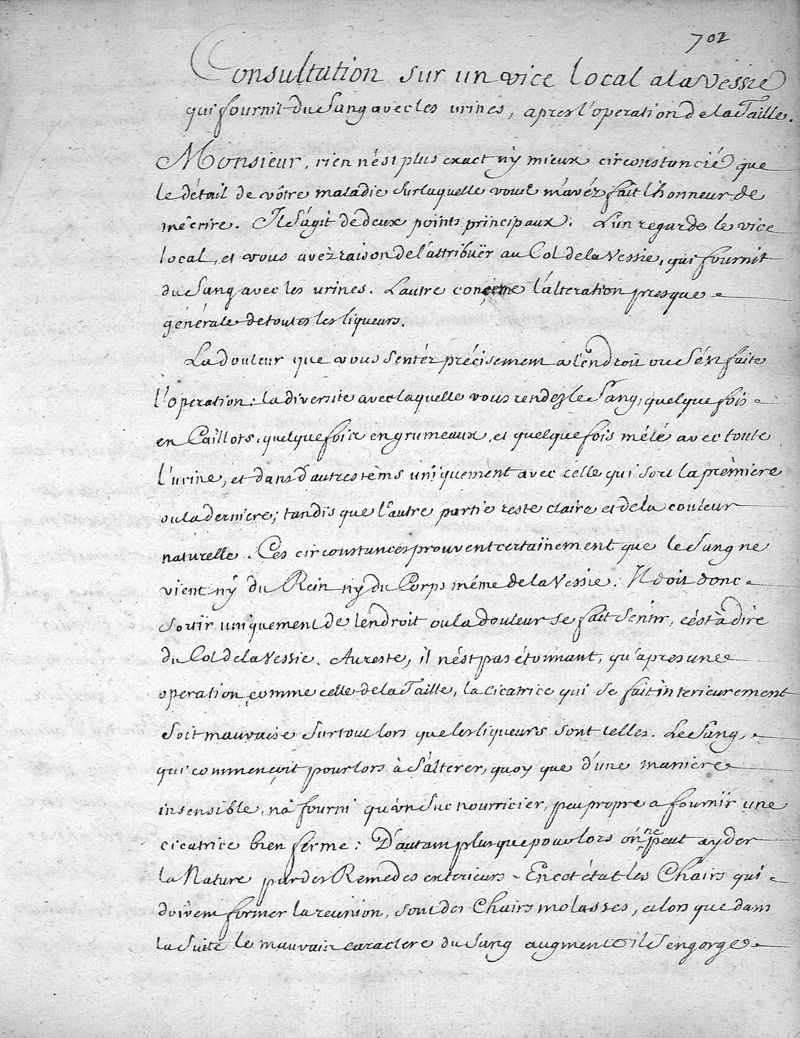 702
Consultation sur un vice local a la vessie
qui fournit du sang avec les urines, apres l'operation de la Taille.
Monsieur, rien n'est plus exact ny mieux circonstancié que
le détail de vôtre maladie sur laquelle vous m'avéz fait l'honneur de
m'écrire. Il s'agit de deux points principaux. L'un regarde le vice
local, et vous avez raison de l'attribuër au Col de la Vessie, qui fournit
du Sang avec les urines. L'autre concerne l'alteration presque
générale de toutes les liqueurs.
La douleur que vous sentéz précisement a l'endroit ou s'est faite
l'operation: la diversité avec laquelle vous rendez le Sang, quelque fois
en Caillots, quelque fois en grumeaux, et quelque fois mêlé avec toute
l'urine, et dans d'autres tèms uniquement avec celle qui sort la première
ou la derniere; tandis que l'autre partie reste claire et de la couleur
naturelle. Ces circonstances prouvent certainement que le Sang ne
vient ny du Rein ny du Corps même de la Vessie. Il doit donc
sortir uniquement de lendroit ou la douleur se fait sentir, c'est à dire
du Col de la Vessie. Au reste, il n'est pas étonnant, qu'apres une
operation comme celle de la Taille, la cicatrice qui se fait interieurement
soit mauvaise surtout lors que les liqueurs sont telles. Le Sang,
qui commençoit pour lors à s'alterer, quoy que d'une maniere
insensible, n'a fourni qu'un Suc nourricier, peu propre a fournir une
cicatrice bien ferme: D'autant plus que pour lors on ne peut ayder
la Nature par des Remedes exterieurs. En cet état les Chairs qui
doivent former la reunion, sont des Chairs molasses, et lors que dans
la Suite le mauvais caractere du Sang augmente il s'engorge